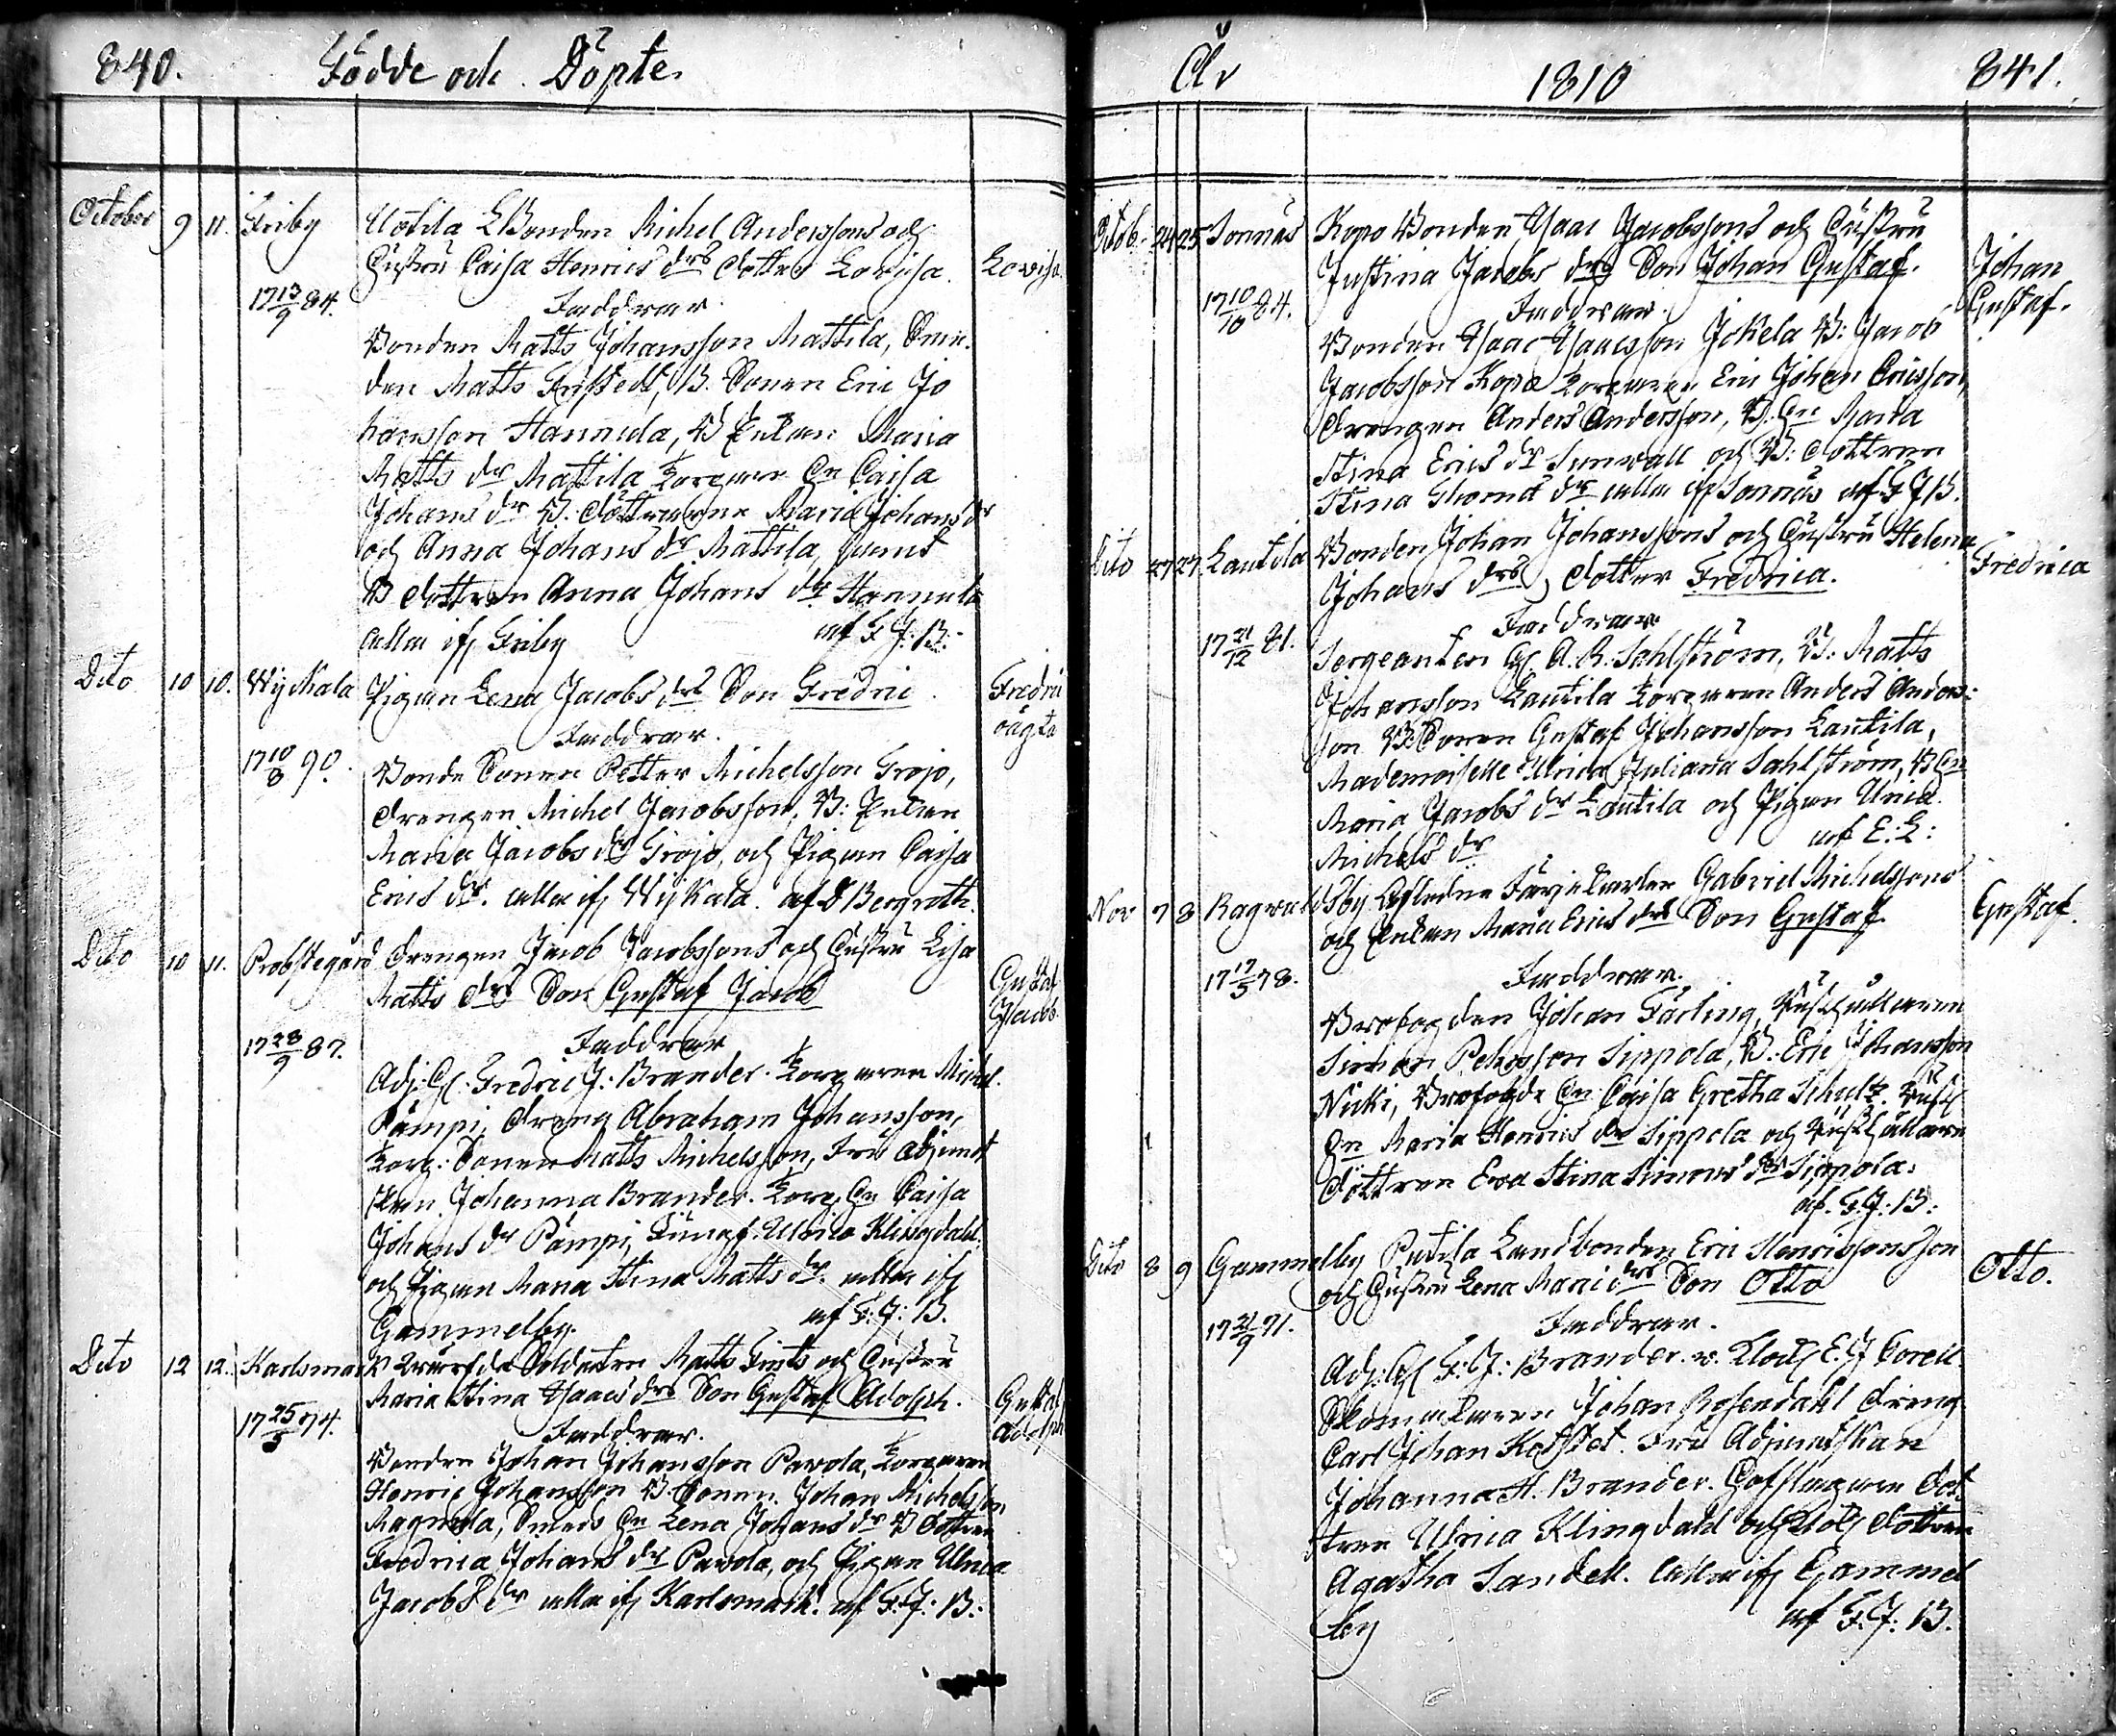 840. Födde och Döpte
October 9 11. Friby Uotila LBonden Michel Anderssons och
Hustru Caisa Henrics drs dotter Lovisa. Lovisa
17 13/9 84. Faddrar.
Bonden Matts Johansson Mattila, Smeden
Matts Fristedt, B. Sonen Eric Jo
hansson Hannula, B Enkan Maria
Matts dr Mattila Torparen Hu Caisa
Johans dr B. döttrarne Maria Johans dr
och Anna Johans dr Mattila, samt
B dottren Anna Johans dr Hannula
alla ifr Friby af F J: B:
Dito 10 10. Wijkala Pigan Lena Jacobs drs Son Fredric. Fredric
oägta
Faddrar.
17 10/8 90. Bonde Sonen Petter Michelsson Fröjo,
drengen Michel Jacobsson, B: Enkan
Maria Jacobs dr Fröjo, och Pigan Caisa
Erics dr. alla ifr Wijkala. af D Bergroth.
Dito 10 11. Probstegård drengen Jacob Jacobssons och Hustru Lisa
Matts drs Son Gustaf Jacob Gustaf
Jacob.
17 28/9 87. Faddrar
Adj: H: Fredric J: Brander. Torparen Michel
Pämpi, dreng Abraham Johansson,
Torp: Sonen Matts Michelsson, Fru Adjunct
skan Johanna Brander. Torp Hu Caisa
Johans dr Pämpi, Jungf: Ulrica Klingdahl.
och Pigan Maria Stina Matts dr. alla ifr
Gammelby. af F: J: B.
Dito 12 12. Karlsmark Soldaten Matts och Hustru
Maria Stina Isaacs drs Son Gustaf Adolph. Gustaf
Adolph
17 25/3 74. Faddrar.
Bonden Johan Johansson Pavola, Torparen
Henric Johansson B. Sonen Johan Michelsson
Magnula, Smeds Hu Lena Johans dr B dottren
Fredrica Johans dr Pavola, och Pigan Ulrica
Jacobs dr alla ifr Karlsmark. af F: J: B:
År 1810 841.
Octob. 24 25 Sonnäs Kopo Bonden Isaac Jacobssons och Hustru
Justina Jacobs drs Son Johan Gustaf. Johan
Gustaf.
17 10/10 84. Faddrar.
Bonden Isaac Isaacsson Jokela B: Jacob
Jacobsson Kopo Torparen Eric Johan Ericsson,
drengen Anders Andersson, B. Hu Maria
Stina Erics dr Sunwall och B: dottren
Stina Thomas dr alla ifr Sonnäs af F J B.
Dito 27 27 Lautila Bonden Johan Johanssons och Hustru Helena
Johans drs, dotter Fredrica. Fredrica
17 21/12 81. Faddrar
Sergeanten H. A. R. Sahlström, B: Matts
Johansson Lautila Torparen Anders Anders-
son B: Sonen Gustaf Johansson Lautila,
Mademoiselle Ulrica Juliana Sahlström, B Hu
Maria Jacobs dr Lautila och Pigan Ulrica
Michels dr af E: L:
Nov 7 8 Ragwaldsby Afledne Färjekarlen Gabriel Michelssons
och Enkan Maria Erics drs Son Gustaf Gustaf.
17 17/3 78. Faddrar.
Brofogden Johan Färling, Rusthållaren
Simon Pehrsson Sippola, B: Eric Johansson
Nicki, Brofogde Hu Caisa Gretha Schultz. Rusth
Hu Maria Henrics dr Sippola och Rusthållare
dottren Eva Stina Simons dr Sippola.
af. F: J: B:
Dito 8 9 Gammelby Putila Landbonden Eric Henricssons
och Hustru Lena Maria drs Son Otto Otto.
17 21/9 71. Faddrar.
Adj: H: F: J: Brander. E: J
Skomakaren Johan Rosendahl dreng
Carl Johan Fru Adjunctskan
Johanna H. Brander. Hofslagare dot
tren Ulrica Klingdahl och dottren
Agatha Sandell. alla ifr Gammel
by af F. J: B.